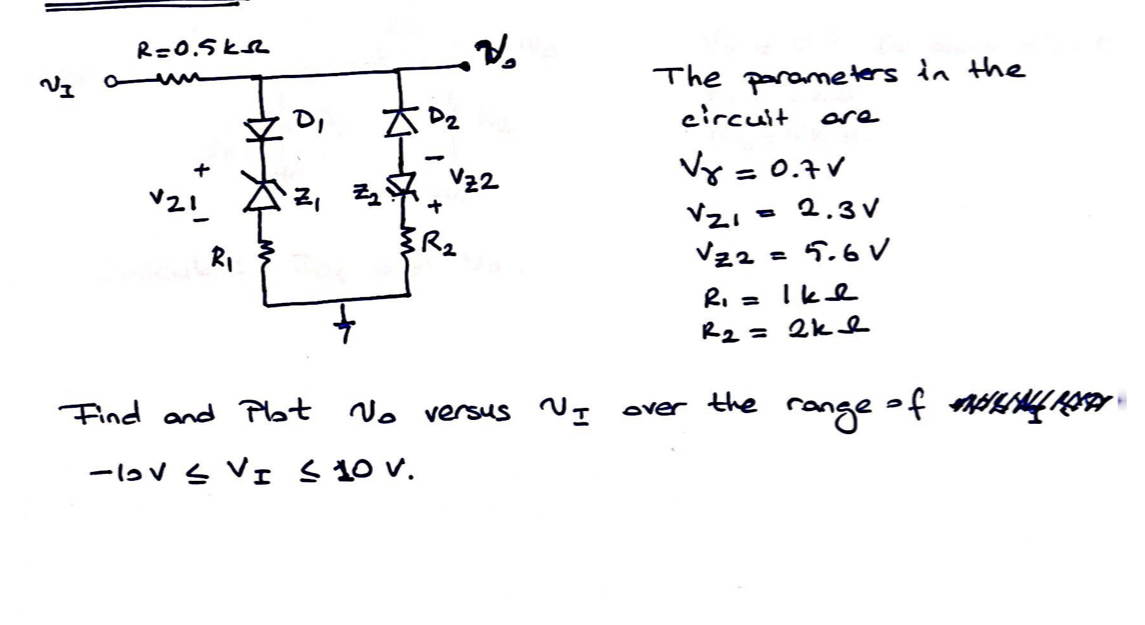 R=0.5kΩ
v₀
vI
D₁
D₂
+
−
VZ1
Z₁
Z₂
VZ2
−
+
R₁
R₂
The parameters in the
circuit are
Vγ = 0.7V
VZ1 = 2.3V
VZ2 = 5.6V
R₁ = 1kΩ
R₂ = 2kΩ
Find and Plot v₀ versus vI over the range of
-10V ≤ VI ≤ 10V.